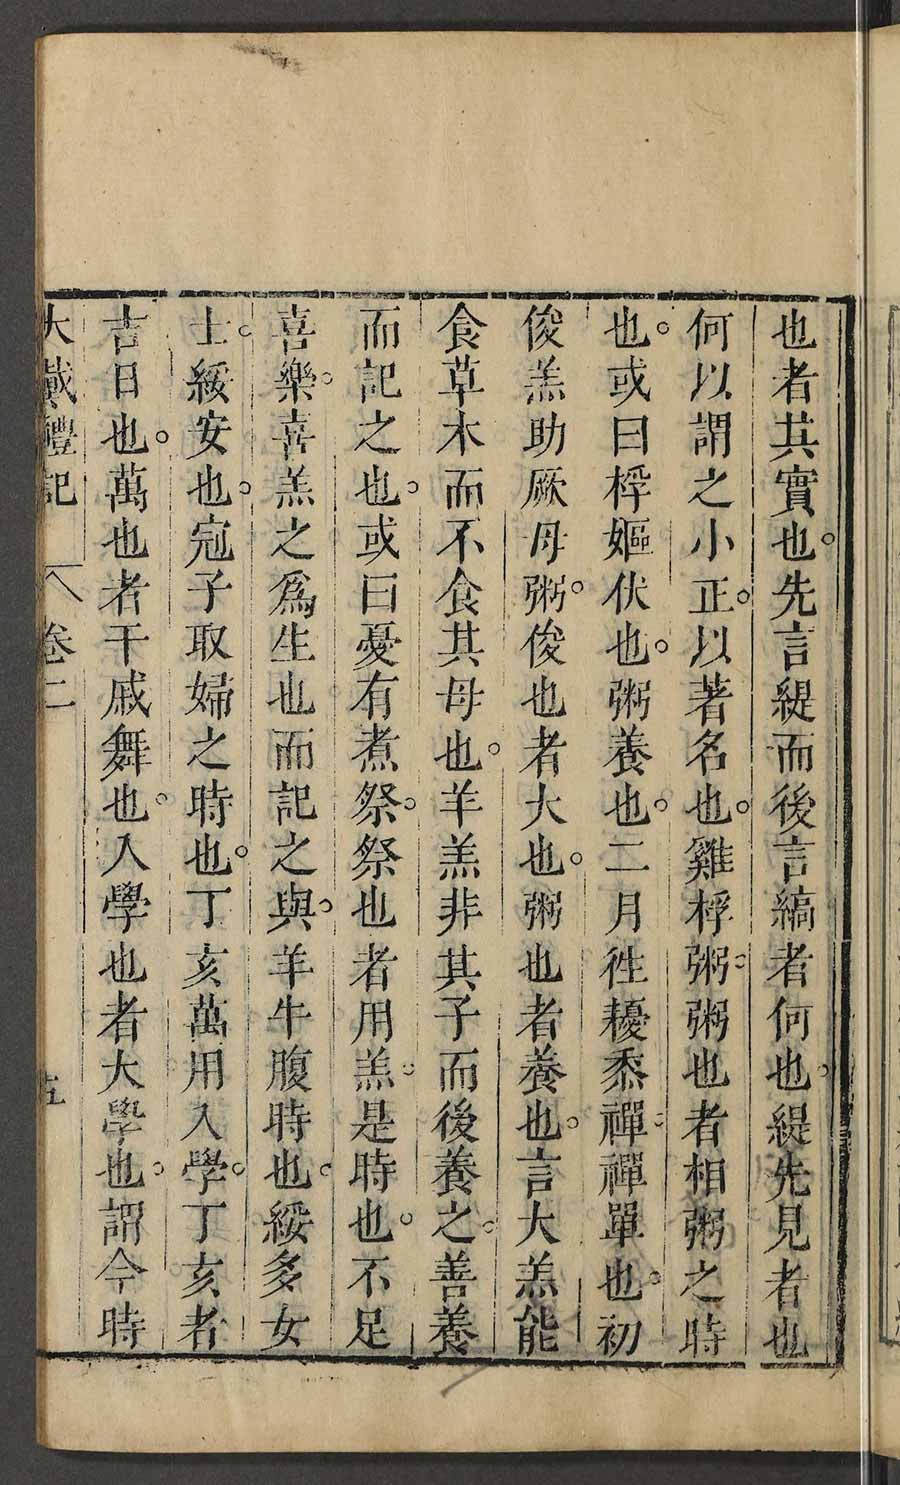 也者其實也。先言緹而後言縞者何也。緹先見者也
何以謂之小正。以著名也。雞桴粥。粥也者相粥之時
也。或曰桴嫗伏也。粥養也。二月徃耰黍禪。禪單也。初
俊羔助厥母粥。俊也者大也。粥也者養也。言大羔能
食草木而不食其母也。羊羔非其子而後養之。善養
而記之也。或曰憂有煮祭。祭也者用羔。是時也。不足
喜樂。喜羔之爲生也而記之與。羊牛腹時也。綏多女
士。綏安也。冠子取婦之時也。丁亥萬用入學。丁亥者
吉日也。萬也者干戚舞也。入學也者大學也。謂今時
大戴禮記 卷二 五